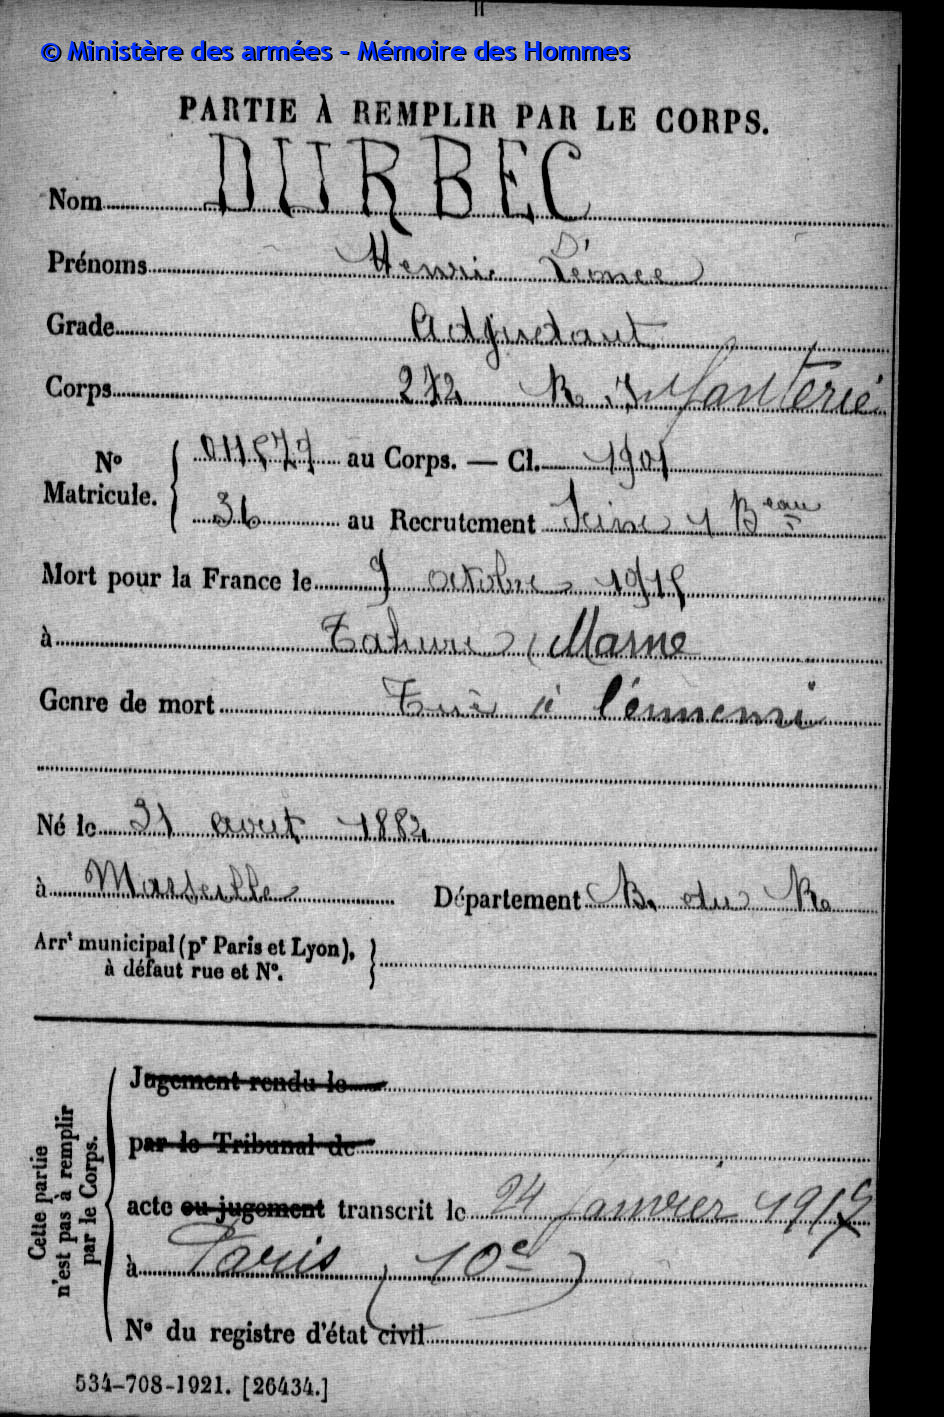 © Ministère des armées - Mémoire des Hommes
PARTIE À REMPLIR PAR LE CORPS.
Nom DURBEC
Prénoms Henri Léonce
Grade Adjudant
Corps 272 R. Infanterie
No Matricule. 011579 au Corps. — Cl. 1901
36 au Recrutement Seine 4 Beau
Mort pour la France le 9 octobre 1915
à Tahure (Marne
Genre de mort Tué à l'ennemi
Né le 21 avut 1882
à Marseille Département B. du R.
Arrt municipal (pr Paris et Lyon),
à défaut rue et No.
Cette partie
n'est pas à remplir
par le Corps.
Jugement rendu le
par le Tribunal de
acte ou jugement transcrit le 24 Janvier
à Paris (10e)
No du registre d'état civil
534-708-1921. [26434.]